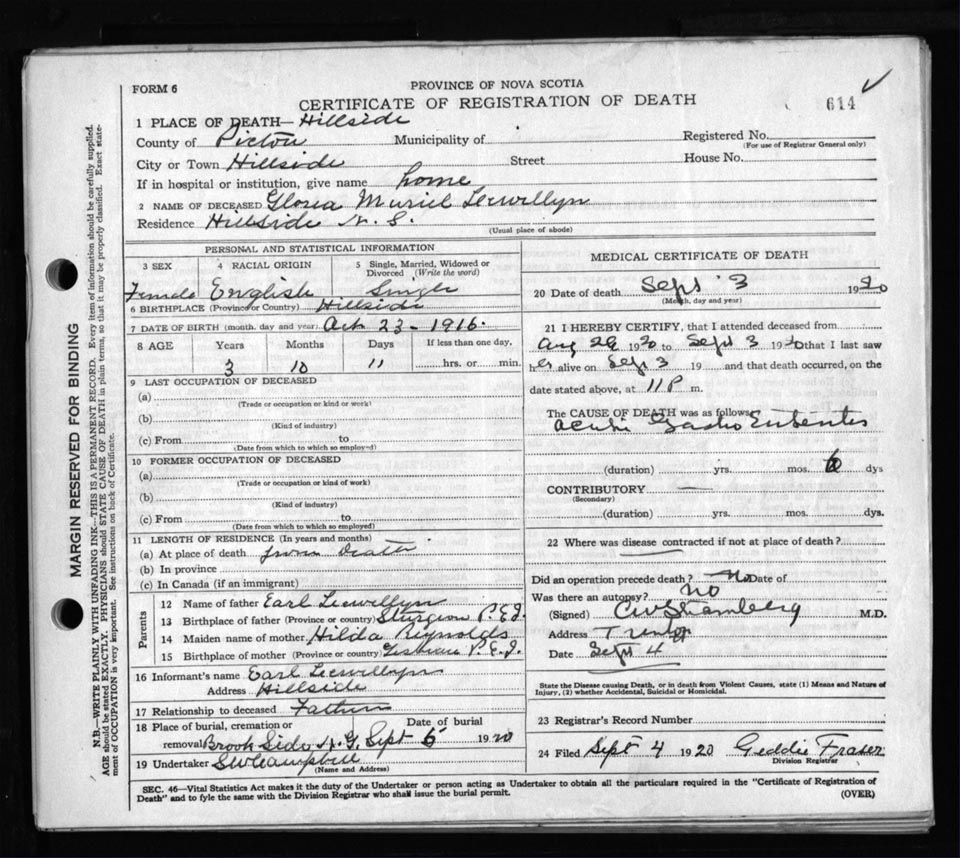 FORM 6
PROVINCE OF NOVA SCOTIA
CERTIFICATE OF REGISTRATION OF DEATH
614
1 PLACE OF DEATH—Hillside
County of Pictou Municipality of Registered No.
(For use of Registrar General only)
City or Town Hillside Street House No.
If in hospital or institution, give name home
2 NAME OF DECEASED Gloria Muriel Llewillyn
Residence Hillside N. S.
(Usual place of abode)
PERSONAL AND STATISTICAL INFORMATION
3 SEX 4 RACIAL ORIGIN 5 Single, Married, Widowed or Divorced (Write the word)
Female English Single
6 BIRTHPLACE (Province or Country) Hillside
7 DATE OF BIRTH (month, day and year) Oct. 23 - 1916.
8 AGE Years Months Days If less than one day,
3 10 11 hrs. or min.
9 LAST OCCUPATION OF DECEASED
(a)
(Trade or occupation or kind or work)
(b)
(Kind of industry)
(c) From to
(Date from which to which so employed)
10 FORMER OCCUPATION OF DECEASED
(a)
(Trade or occupation or kind of work)
(b)
(Kind of industry)
(c) From to
(Date from which to which so employed)
11 LENGTH OF RESIDENCE (In years and months)
(a) At place of death
(b) In province
(c) In Canada (if an immigrant)
Parents
12 Name of father Earl Llewillyn
13 Birthplace of father (Province or country) Sturgeon P.E.I.
14 Maiden name of mother Hilda Reynolds
15 Birthplace of mother (Province or country) P.E.I.
16 Informant's name Earl Llewillyn
Address Hillside
17 Relationship to deceased Father
18 Place of burial, cremation or Date of burial
removal Brook Side, Sept 5 1920
19 Undertaker Campbell
(Name and Address)
MEDICAL CERTIFICATE OF DEATH
20 Date of death Sept 3 1920
(Month, day and year)
21 I HEREBY CERTIFY, that I attended deceased from
Aug 1920 to Sept 3 1920 that I last saw
her alive on Sept 3 19 and that death occurred, on the
date stated above, at 11 P m.
The CAUSE OF DEATH was as follows
Gastro Enteritis
(duration) yrs. mos. 6 dys
CONTRIBUTORY
(Secondary)
(duration) yrs. mos. dys.
22 Where was disease contracted if not at place of death?
Did an operation precede death? No Date of
Was there an autopsy? No
(Signed) M.D.
Address
Date Sept 4
State the Disease causing Death, or in death from Violent Causes, state (1) Means and Nature of
Injury, (2) whether Accidental, Suicidal or Homicidal.
23 Registrar's Record Number
24 Filed Sept 4 1920 Geddie Fraser
Division Registrar
SEC. 46—Vital Statistics Act makes it the duty of the Undertaker or person acting as Undertaker to obtain all the particulars required in the "Certificate of Registration of
Death" and to fyle the same with the Division Registrar who shall issue the burial permit.
(OVER)
MARGIN RESERVED FOR BINDING
N.B.—WRITE PLAINLY WITH UNFADING INK—THIS IS A PERMANENT RECORD. Every item of information should be carefully supplied.
AGE should be stated EXACTLY. PHYSICIANS should STATE CAUSE OF DEATH in plain terms, so that it may be properly classified. Exact state-
ment of OCCUPATION is very important. See instructions on back of Certificate.